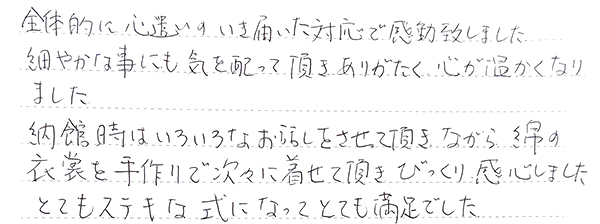 全体的に心遣いのいき届いた対応で感動致しました
細やかな事にも気を配って頂きありがたく心が温かくなり
ました
納館時はいろいろなお話しをさせて頂きながら綿の
衣裳を手作りで次々に着せて頂きびっくり感心しました
とてもステキな式になってとても満足でした